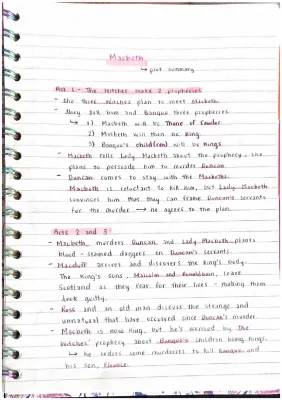 Macbeth
↳ plot summary
Act 1 - The witches make 2 prophecies
- The three witches plan to meet Macbeth.
- They tell him and Banquo three prophecies.
↳ 1) Macbeth will be Thane of Cawdor.
2) Macbeth will then be King.
3) Banquo's child(ren) will be kings.
- Macbeth tells Lady Macbeth about the prophecy. She
plans to persuade him to murder Duncan.
- Duncan comes to stay with the Macbeths.
Macbeth is reluctant to kill him, but Lady Macbeth
convinces him that they can frame Duncan's servants
for the murder → he agrees to the plan.
Acts 2 and 3:
- Macbeth murders Duncan and Lady Macbeth plants
blood-stained daggers on Duncan's servants.
- Macduff arrives and discovers the King's body.
The King's sons, Malcolm and Donalbain, leave
Scotland as they fear for their lives - making them
look guilty.
- Ross and an old man discuss the strange and
unnatural that have occurred since Duncan's murder.
- Macbeth is now King, but he's worried by the
witches' prophecy about Banquo's children being kings.
↳ he orders some murderers to kill Banquo and
his son, Fleance.